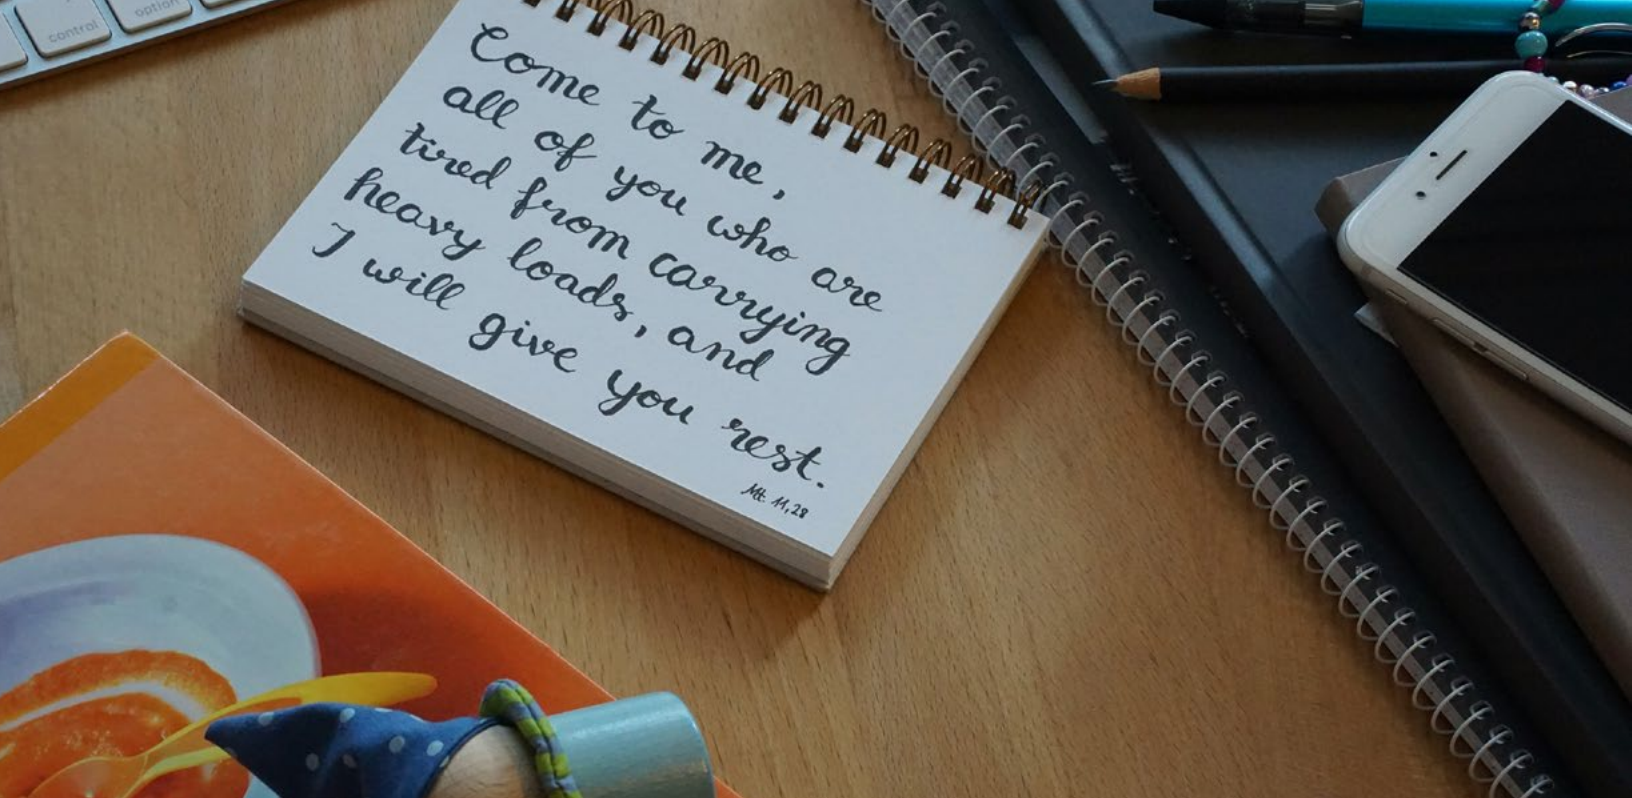 control
option
Come to me,
all of you who are
tired from carrying
heavy loads, and
I will give you rest.
Mt. 11,28